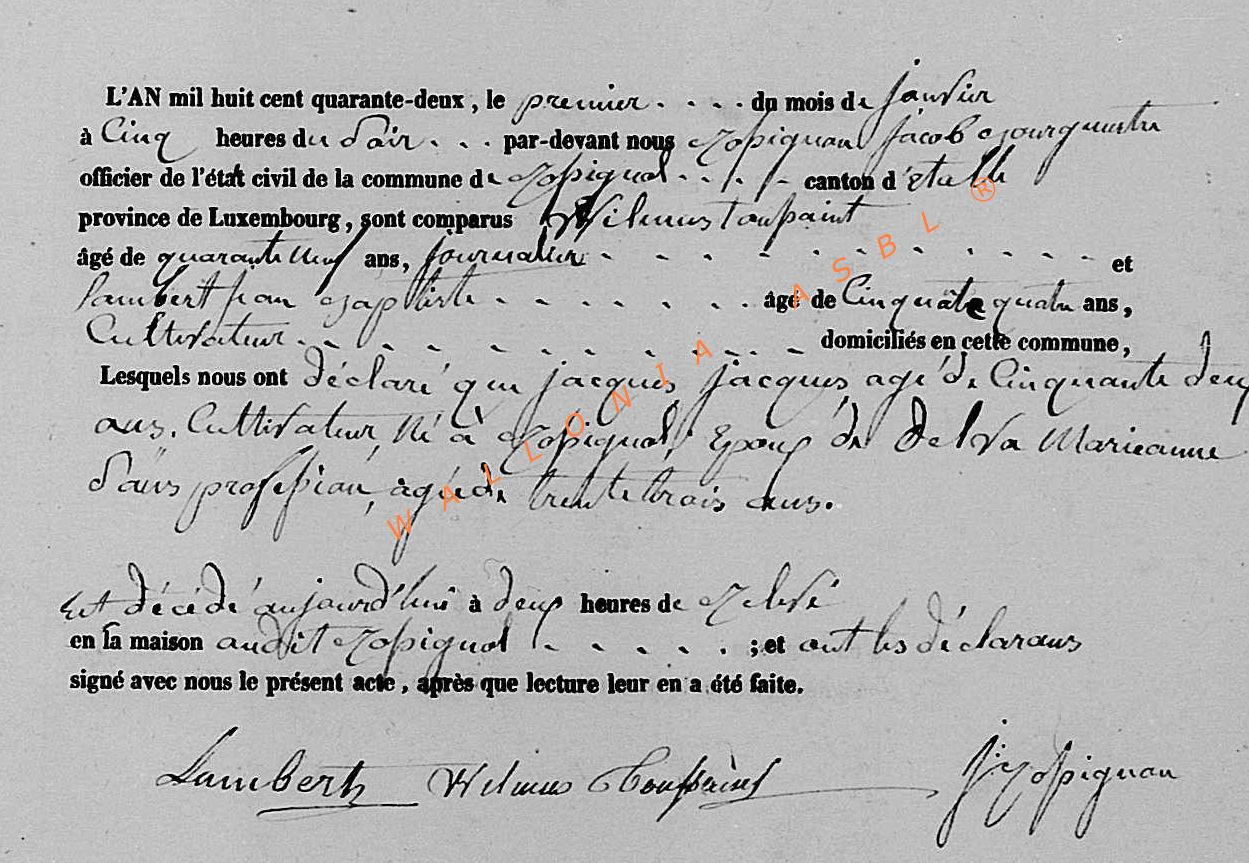 L'AN mil huit cent quarante-deux, le premier . . . . du mois de janvier
à Cinq heures du Soir . . . par-devant nous Rossignon Jacob Bourguestre
officier de l'état civil de la commune de Rossignol . . . . - canton d'Etalle
province de Luxembourg, sont comparus Wilmus Toussaint
âgé de quarante neuf ans, journalier - - - - - - - - - - - et
Lambert jean Baptiste - - - - - - - . . âgé de Cinquante quatre ans,
Cultivateur - - - - - - - - - - domiciliés en cette commune,
Lesquels nous ont déclaré que jacques jacques, agé de Cinquante deux
ans, Cultivateur, Né à Rossignol, Epoux de Delva Marieanne
Sans profession, âgée de trente trois ans.
Est décédé aujourd'hui à deux heures de
en sa maison audit Rossignol - - - - - . ; et ont les déclarans
signé avec nous le présent acte, après que lecture leur en a été faite.
Lambert Wilmus Toussaint J. Rossignon
WALLONIA ASBL ®